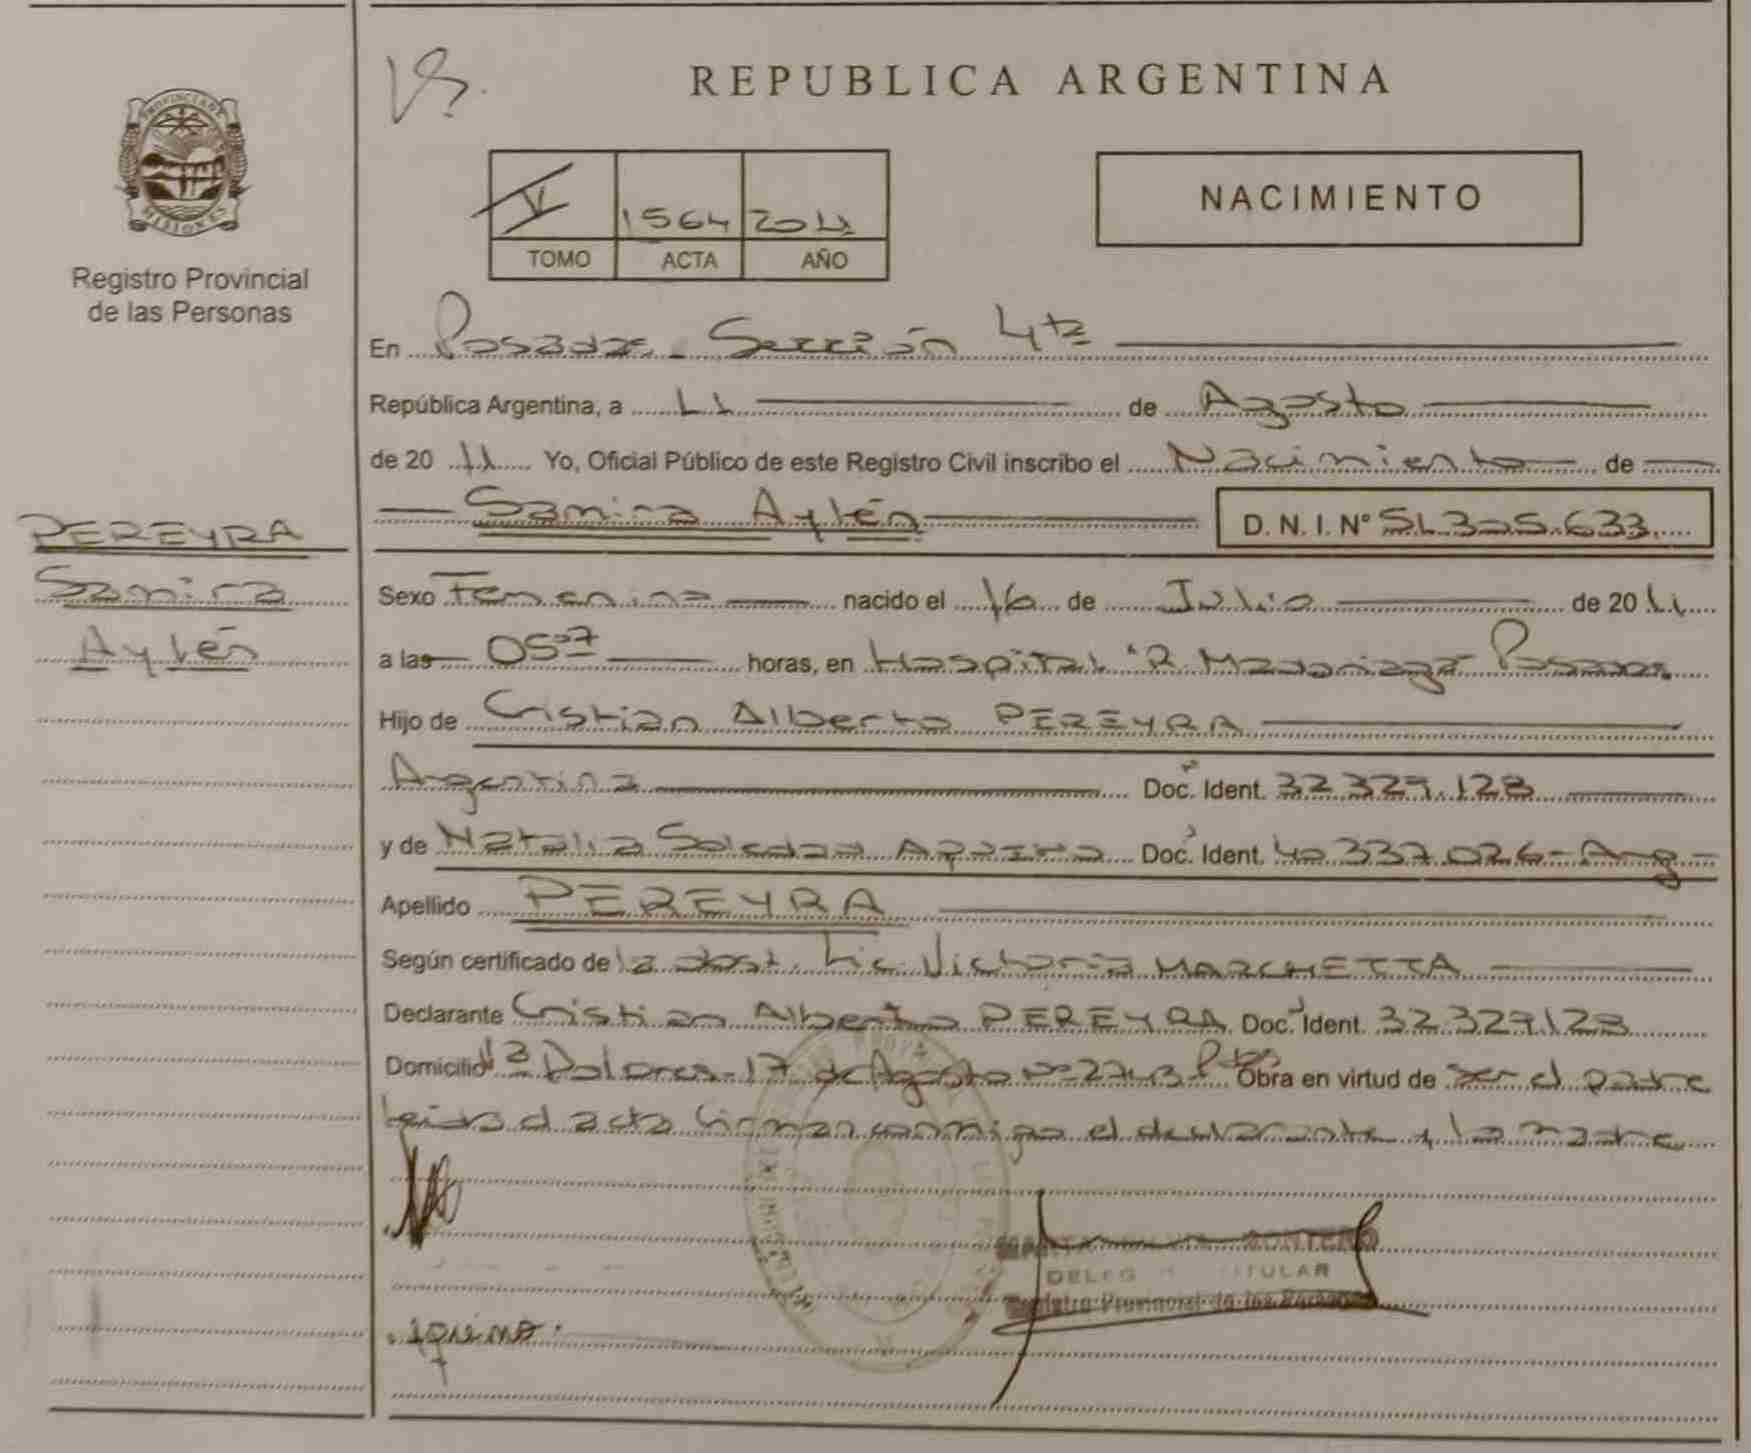 REPUBLICA ARGENTINA
PROVINCIA DE MISIONES
Registro Provincial
de las Personas
V 1564 2011
TOMO ACTA AÑO
NACIMIENTO
En Posadas - Sección 4ta
República Argentina, a 11 de Agosto
de 2011 Yo, Oficial Público de este Registro Civil inscribo el Nacimiento de
Samira Aylén D. N. I. Nº 51.305.633
PEREYRA
Samira
Aylén
Sexo Femenino nacido el 16 de Julio de 2011
a las 05:07 horas, en Hospital "R. Madariaga" Posadas
Hijo de Cristian Alberto PEREYRA
Argentina Doc. Ident. 32.329.128
y de Natalia Soledad Aquino Doc. Ident. 40.337.026 - Arg -
Apellido PEREYRA
Según certificado de la obst. Lic Victoria MARCHETTA
Declarante Cristian Alberto PEREYRA Doc. Ident. 32.329.128
Domicilio Vª Dolores - 17 de Agosto Nº 2743 - Pdas Obra en virtud de ser el padre
leída el acta firman conmigo el declarante y la madre
Aquino.
DELEG TITULAR
Registro Provincial de las Personas